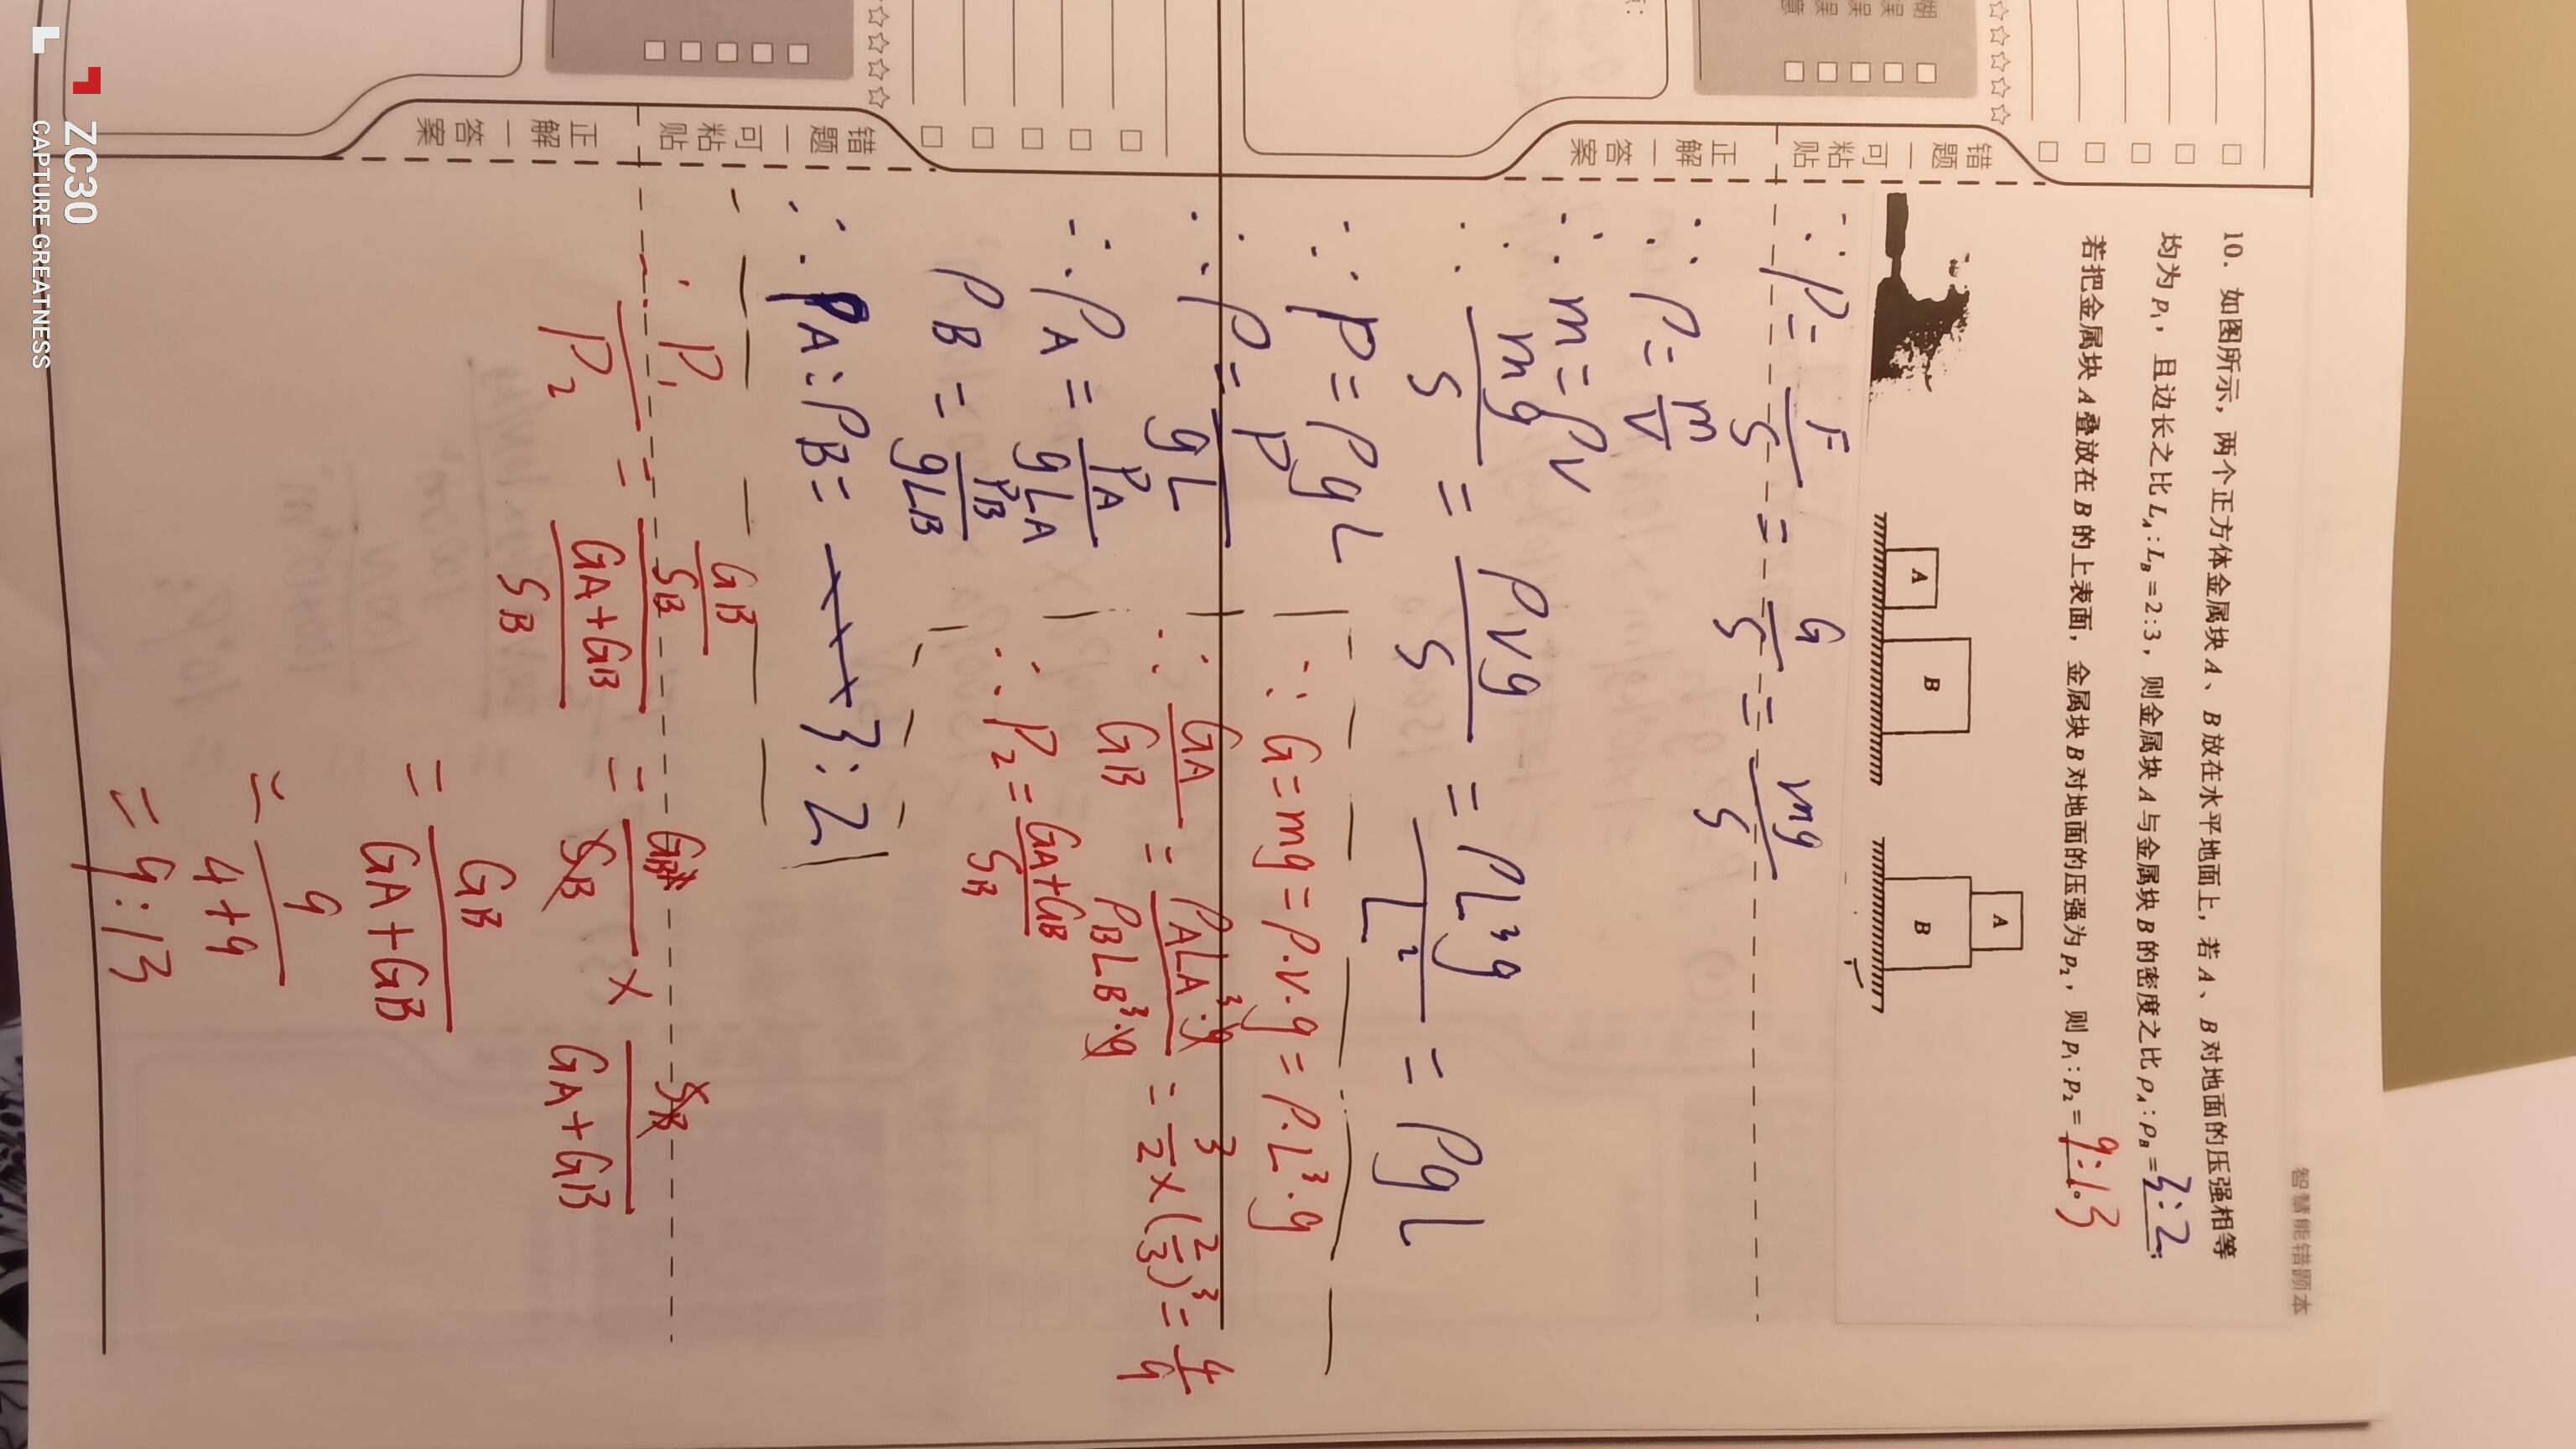 智慧能错题本
10. 如图所示，两个正方体金属块 A、B 放在水平地面上，若 A、B 对地面的压强相等
均为 p₁，且边长之比 L_A : L_B = 2 : 3，则金属块 A 与金属块 B 的密度之比 ρ_A : ρ_B = 3:2;
若把金属块 A 叠放在 B 的上表面，金属块 B 对地面的压强为 p₂，则 p₁ : p₂ = 9:13
A
B
A
B
∵ P = F/S = G/S = mg/S
∵ ρ = m/V
∴ m = ρV
∴ mg/S = ρVg/S = ρL³g/L² = ρgL
∴ P = ρgL
∴ ρ = P/gL
∴ ρA = PA/gLA
ρB = PB/gLB
∴ ρA : ρB = 3:2
∵ G = mg = ρ·V·g = ρ·L³·g
∴ GA/GB = ρALA³·g/ρBLB³·g = 3/2 × (2/3)³ = 4/9
∴ P₂ = GA+GB/SB
∴ P₁/P₂ = GB/SB / GA+GB/SB = GB/SB × SB/GA+GB
= GB/GA+GB
= 9/4+9
= 9:13
错题一可粘贴
正解一答案
错题一可粘贴
正解一答案
ZC30
CAPTURE GREATNESS